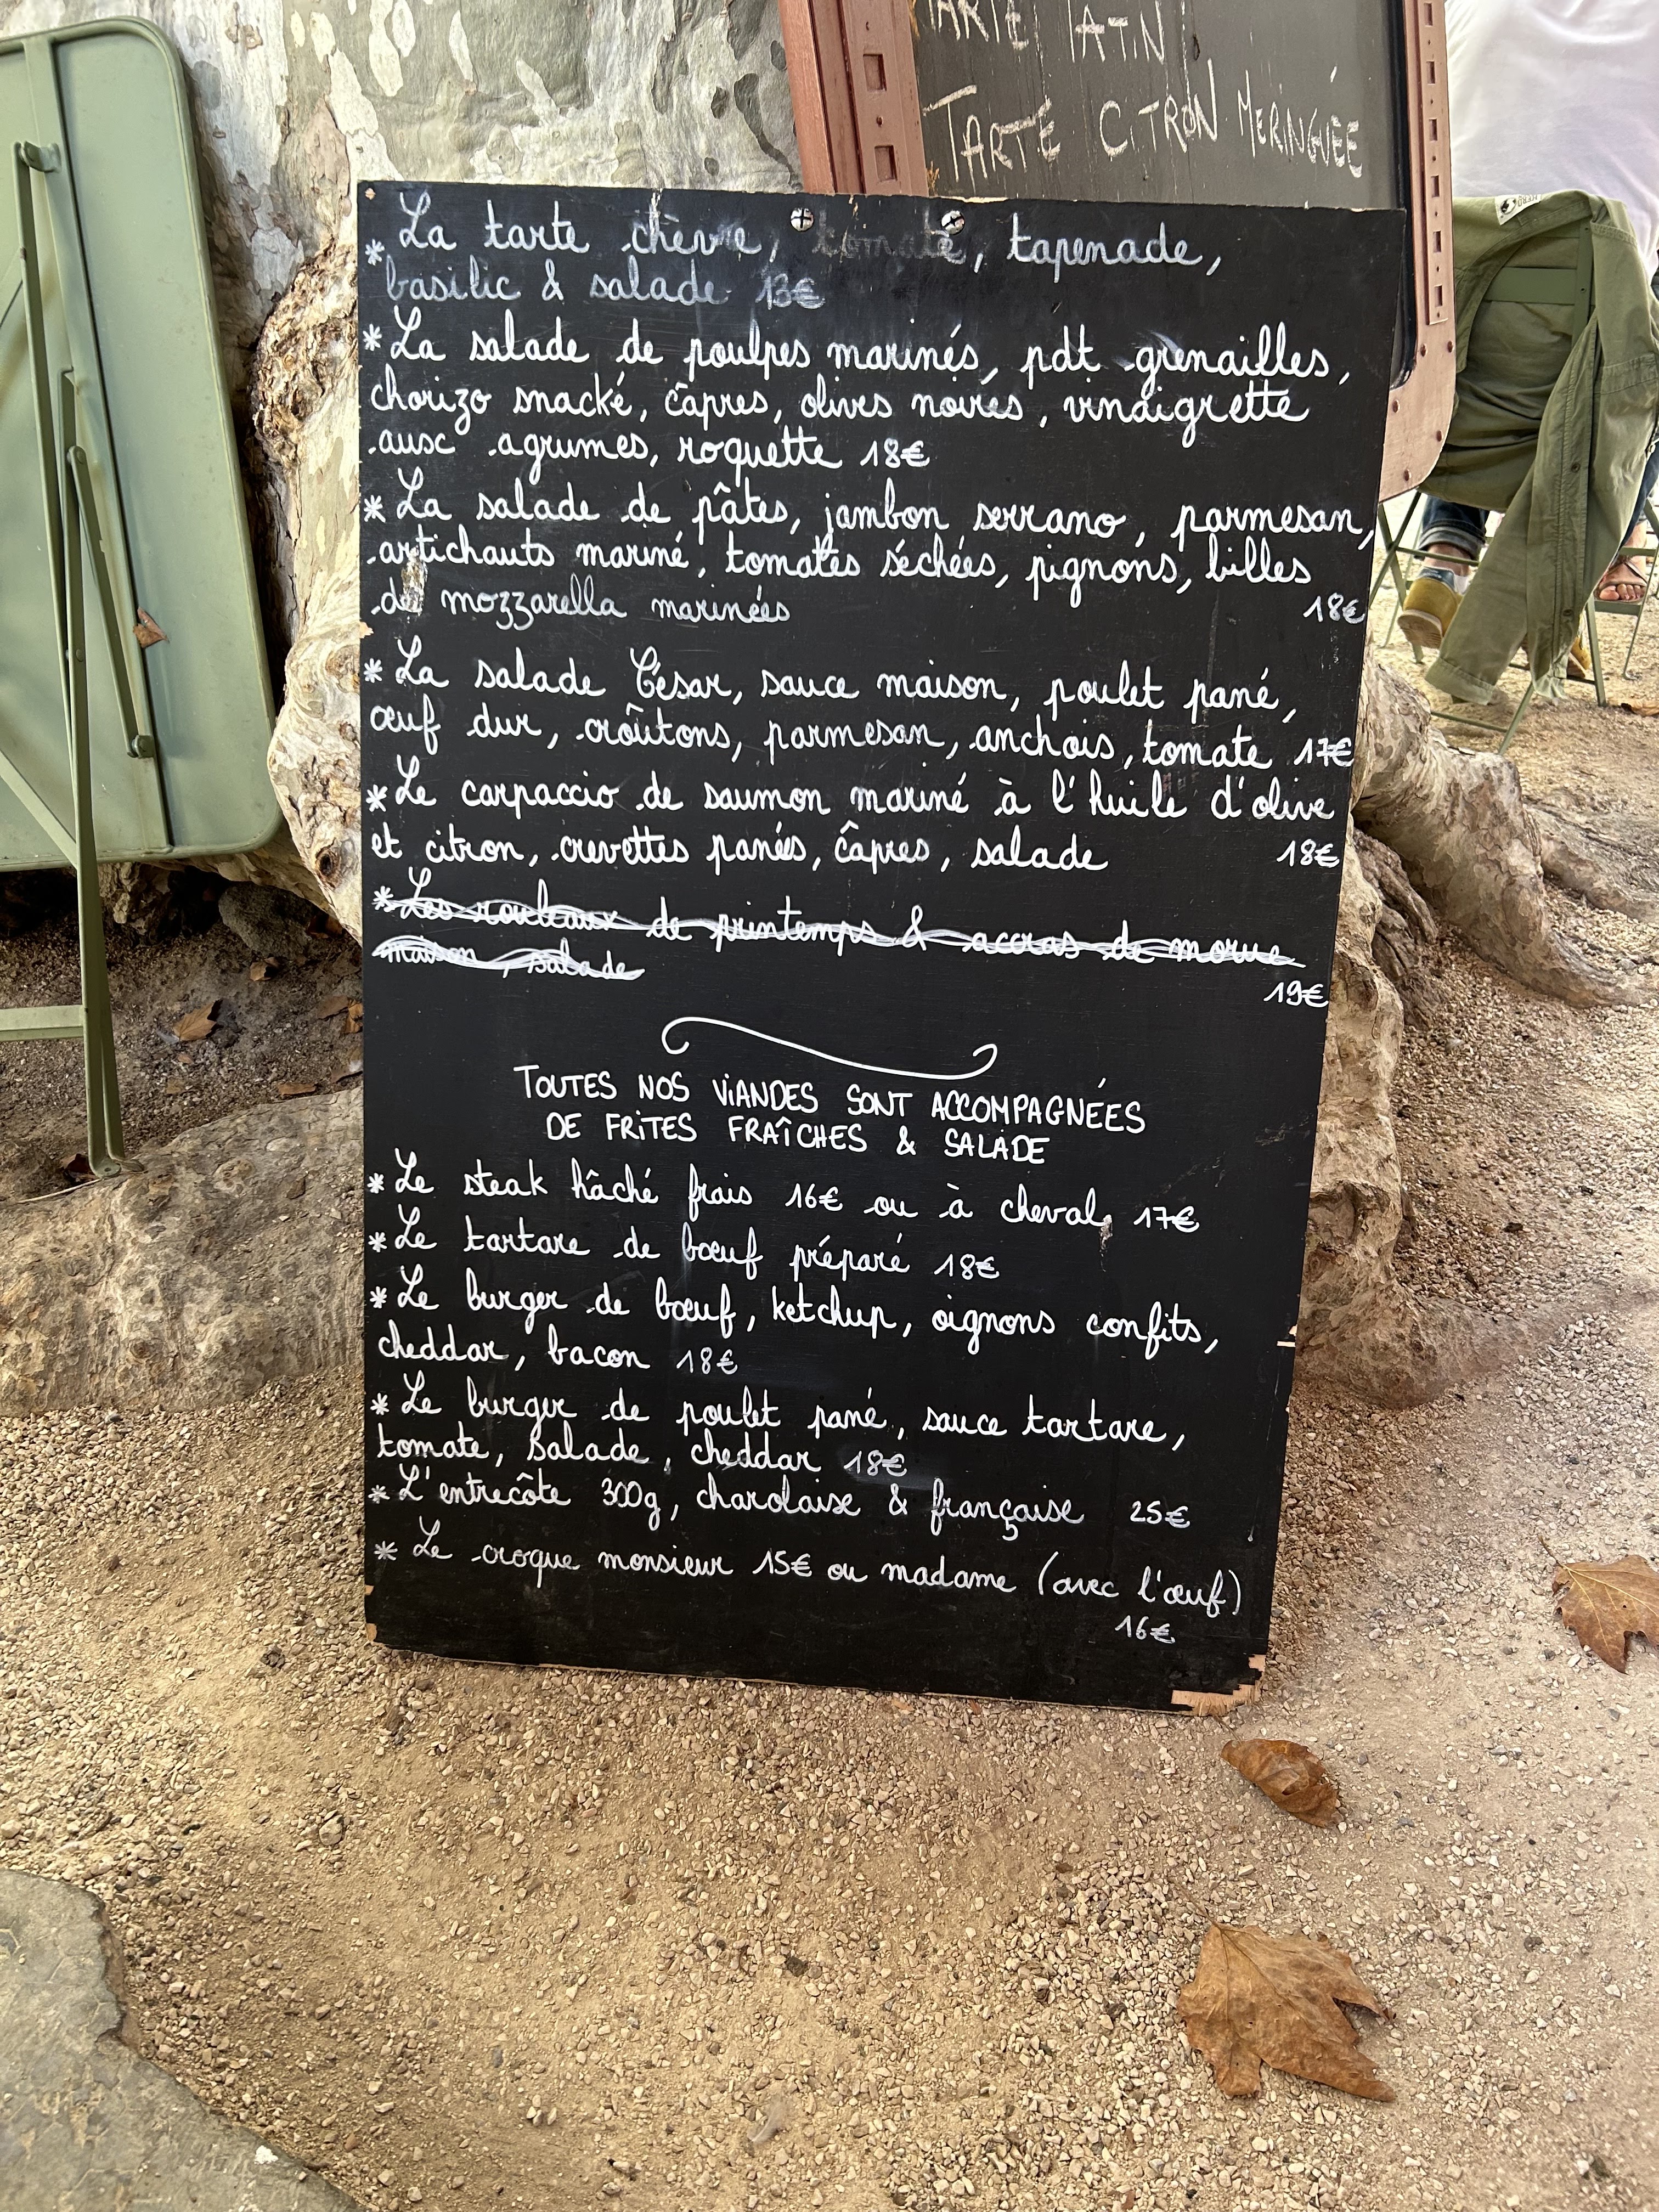 TARTE CITRON MERINGUÉE
* La tarte chèvre, tomate, tapenade,
basilic & salade 13€
* La salade de poulpes marinés, pdt grenailles,
chorizo snacké, câpres, olives noires, vinaigrette
aux agrumes, roquette 18€
* La salade de pâtes, jambon serrano, parmesan,
artichauts mariné, tomates séchées, pignons, billes
de mozzarella marinées 18€
* La salade César, sauce maison, poulet pané,
œuf dur, croûtons, parmesan, anchois, tomate 17€
* Le carpaccio de saumon mariné à l'huile d'olive
et citron, crevettes panées, câpres, salade 18€
* Les rouleaux de printemps & accras de morue
maison, salade
19€
TOUTES NOS VIANDES SONT ACCOMPAGNÉES
DE FRITES FRAÎCHES & SALADE
* Le steak hâché frais 16€ ou à cheval 17€
* Le tartare de bœuf préparé 18€
* Le burger de bœuf, ketchup, oignons confits,
cheddar, bacon 18€
* Le burger de poulet pané, sauce tartare,
tomate, salade, cheddar 18€
* L'entrecôte 300g, charolaise & française 25€
* Le croque monsieur 15€ ou madame (avec l'œuf)
16€